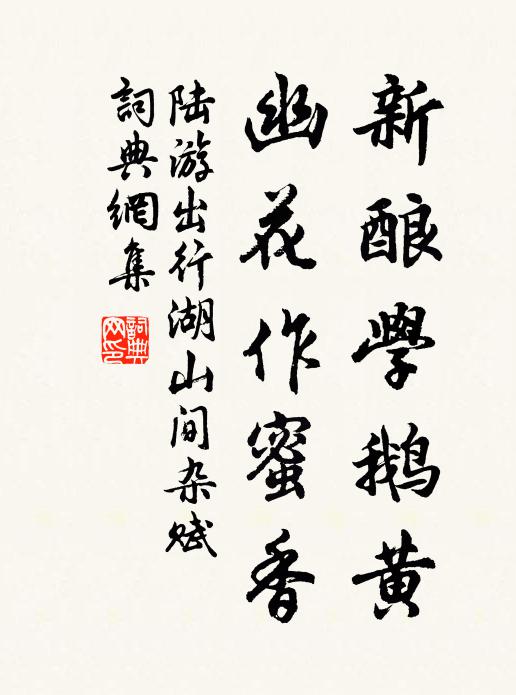 新酿學鹅黄
幽花作蜜香
陆游出行湖山间杂赋
詞典網集
詞典网印